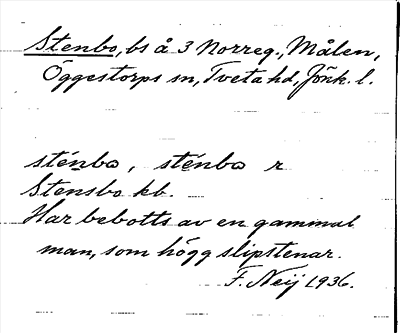 Stenbo, bs å 3 Norreg., Målen,
Öggestorps sn, Tveta hd, Jönk. l.
sténbo, sténbo r
Stensbo kb.
Har bebotts av en gammal
man, som högg slipstenar.
F. Neij 1936.